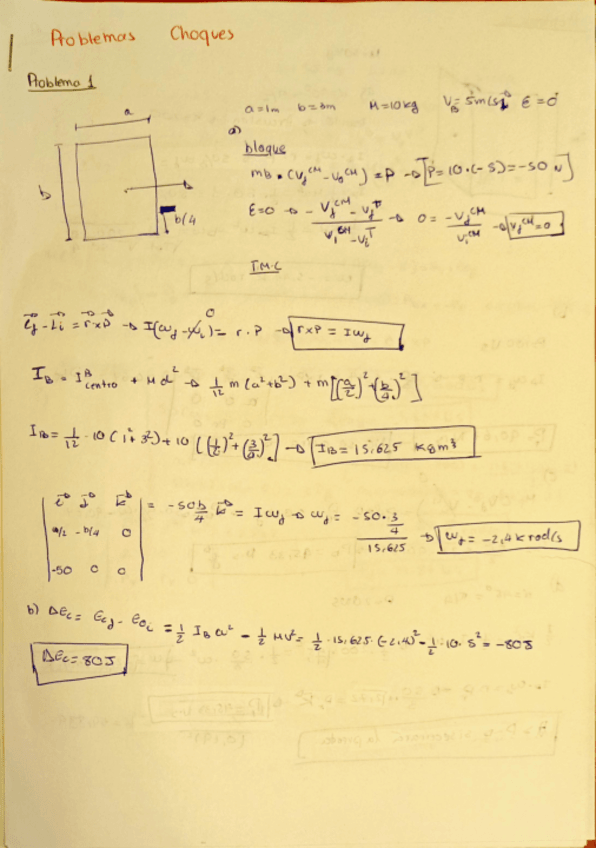 Problemas Choques
Problema 1
a
b
b/4
a=1m b=3m M=10kg V_B=5m/s ε=0
a)
bloque
m_B · (V_f^CM - V_0^CM) = P → [P = 10·(-5) = -50 N]
ε=0 → - (V_f^CM - V_f^T)/(V_i^CM - V_i^T) → 0 = -V_f^CM/V_i^CM → V_f^CM = 0
T.M.C
L_f - L_i = r x P → I(ω_f - ω_i) = r · P → r x P = I ω_f
0
I_B = I^B_centro + M d² → 1/12 m (a²+b²) + m[(a/2)² + (b/4)²]
I_B = 1/12 · 10 (1²+3²) + 10 ((1/2)² + (3/4)²) → I_B = 15,625 kg m²
| i j k |
| a/2 -b/4 0 | = -50b/4 k = I ω_f → ω_f = -50·3/4 / 15,625 → ω_f = -2,4 k rad/s
| -50 0 0 |
b) ΔEc = Ec_f - Ec_i = 1/2 I_B ω² - 1/2 MV² = 1/2 · 15,625 · (-2,4)² - 1/2 · 10 · 5² = -80J
ΔEc = 80J